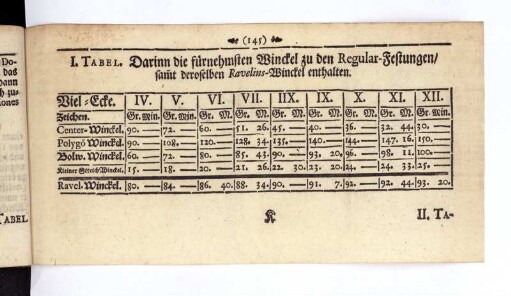 (145)
Do-
das
Dann
ch zu-
iones
TABEL
I. TABEL. Darinn die fürnehmsten Winckel zu den Regular-Festungen/
samt deroselben Ravelins-Winckel enthalten.
Viel-Ecke. IV. V. VI. VII. IIX. IX. X. XI. XII.
Zeichen. Gr. Min. Gr. Min. Gr. Min. Gr. Min. Gr. Min. Gr. Min. Gr. Min. Gr. Min. Gr. Min.
Center-Winckel. 90. — 72. — 60. — 51. 26. 45. — 40. — 36. — 32. 44. 30. —
Polygō Winckel. 90. — 108. — 120. — 128. 34 135. — 140. — 144. — 147. 16 150. —
Bolw. Winckel. 60. — 72. — 80. — 85. 43. 90. — 93. 20. 96. — 98. 11. 100. —
Kleiner Streich Winckel. 15. — 18. — 20. — 21. 26. 22. 30. 23. 20. 24. — 24. 33. 25. —
Ravel. Winckel. 80. — 84. — 86. 40. 88. 34. 90. — 91. 7. 92. — 92. 44. 93. 20.
K II. TA-